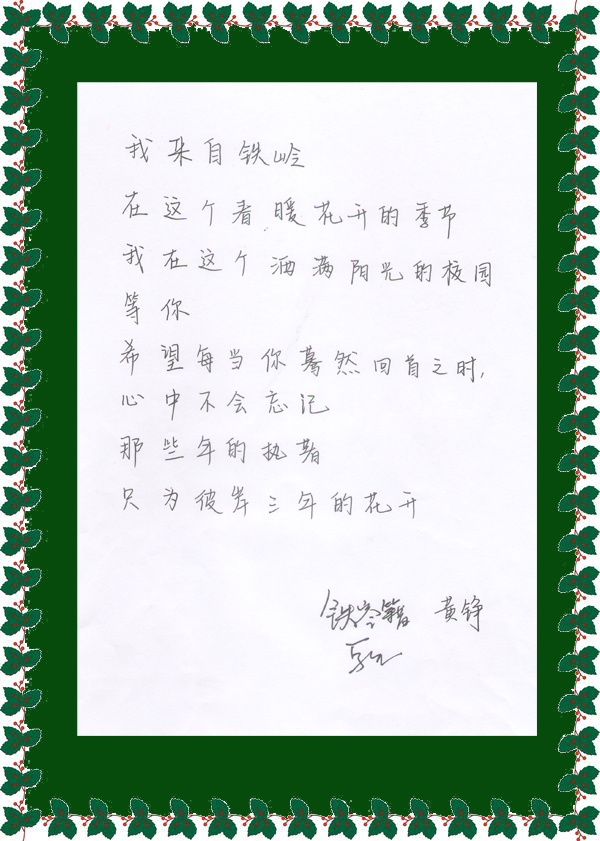 我来自铁岭
在这个春暖花开的季节
我在这个洒满阳光的校园
等你
希望每当你蓦然回首之时,
心中不会忘记
那些年的执着
只为彼岸三年的花开
铁岭籍 黄铮